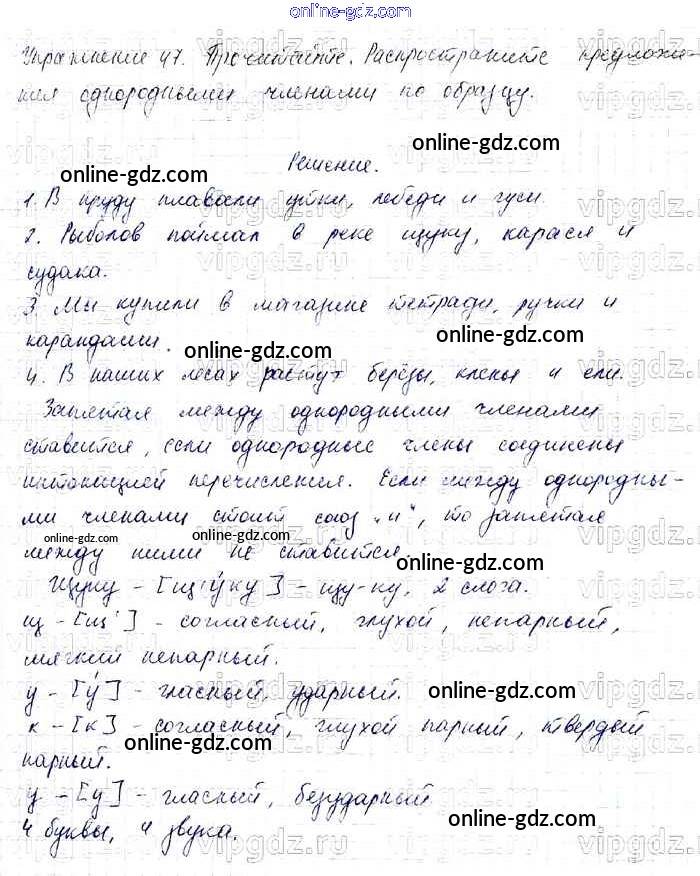 online-gdz.com
Упражнение 47. Прочитайте. Распространите предложе-
ния однородными членами по образцу.
online-gdz.com
Решение.
online-gdz.com
1. В пруду плавали утки, лебеди и гуси.
2. Рыболов поймал в реке щуку, карася и
судака.
online-gdz.com
3. Мы купили в магазине тетради, ручки и
карандаши.
online-gdz.com
online-gdz.com
4. В наших лесах растут берёзы, клены и ели.
Запятая между однородными членами
ставится, если однородные члены соединены
интонацией перечисления. Если между однородны-
ми членами стоит союз „и", то запятая
online-gdz.com
online-gdz.com
между ними не ставится.
Щуку - [щ'у́ку] - щу-ку, 2 слога.
щ - [щ'] - согласный, глухой, непарный,
мягкий непарный.
у - [у́] - гласный, ударный.
online-gdz.com
к - [к] - согласный, глухой парный, твердый
парный.
online-gdz.com
у - [у] - гласный, безударный
4 буквы, 4 звука.
online-gdz.com